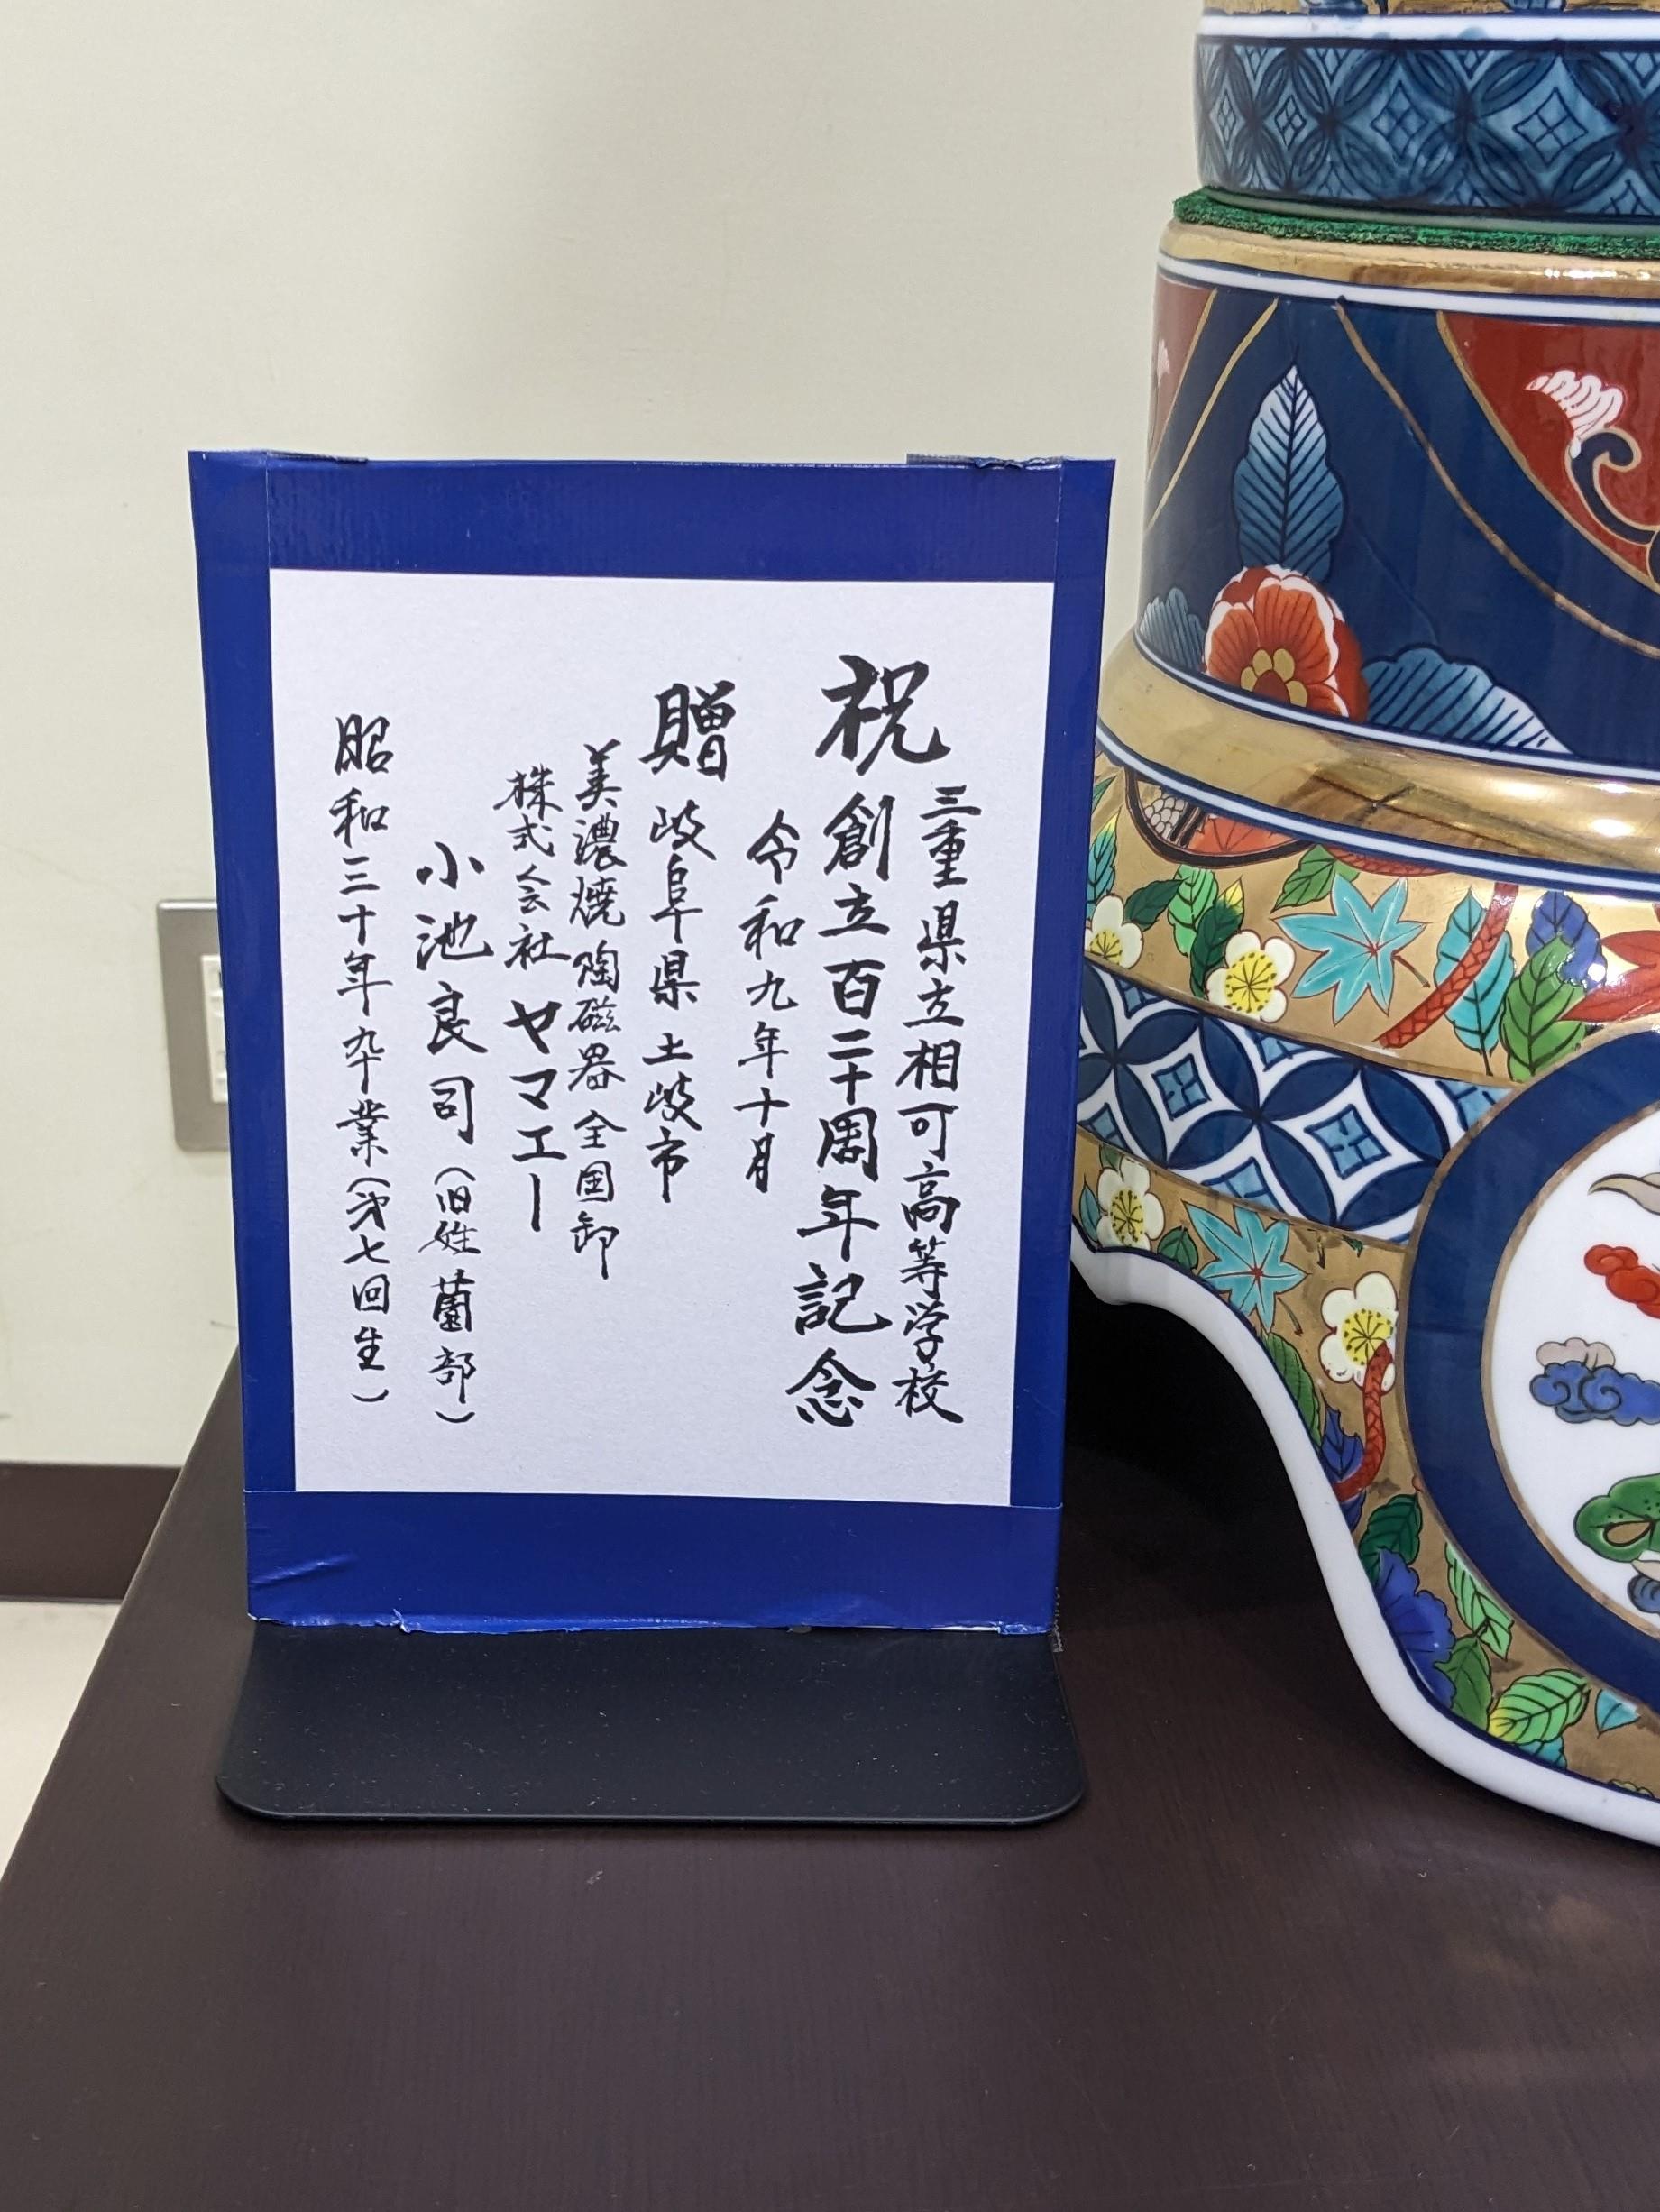 祝 三重県立相可高等学校
創立百二十周年記念
令和九年十月
贈 岐阜県土岐市
美濃焼陶磁器全国卸
株式会社ヤマエー
小池良司(旧姓薗部)
昭和三十年卆業(㐧七回生)